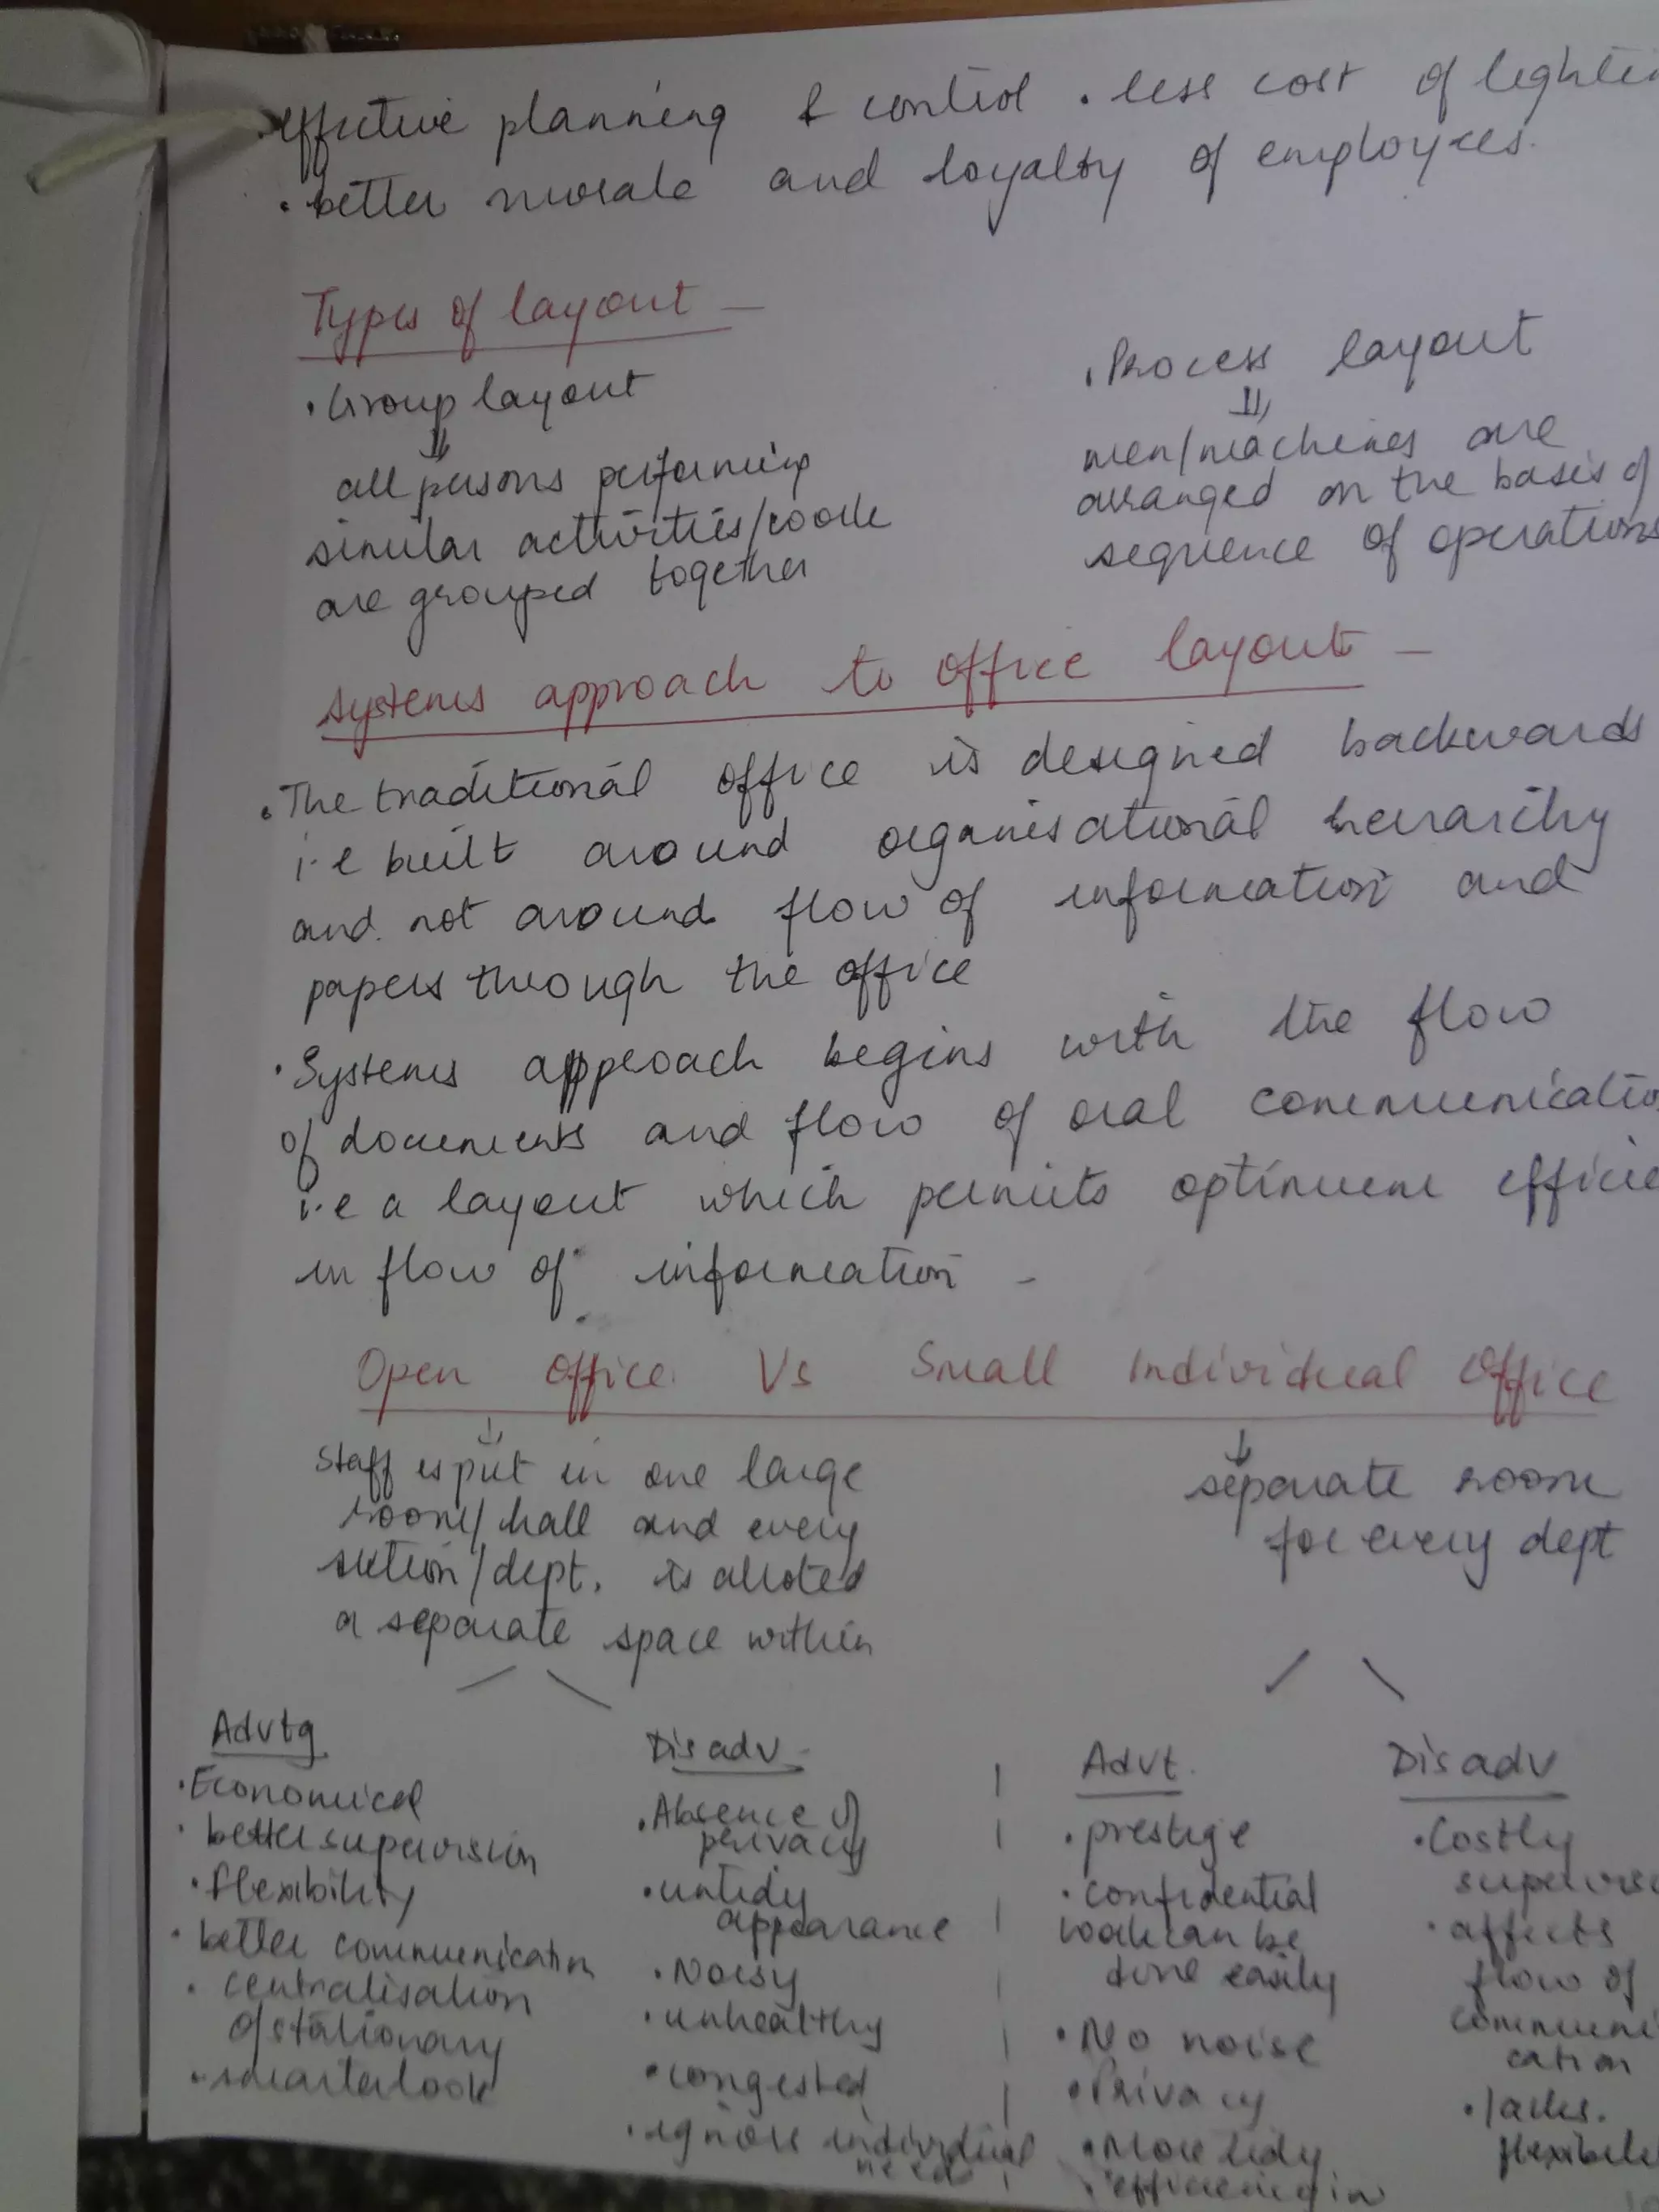 • effective planning & control . less cost of lighti
• better morale and loyalty of employees.
Types of layout —
• Group layout
⇓
all persons performing
similar activities/work
are grouped together
• Process layout
⇓
men/machines are
arranged on the basis of
sequence of operations
systems approach to office layout —
• The traditional office is designed backwards
i.e built around organisational heirarchy
and not around flow of information and
papers through the office
• Systems approach begins with the flow
of documents and flow of oral communicatio
i.e a layout which permits optimum efficie
in flow of information -
Open office Vs Small Individual Office
↓
staff is put in one large
room/hall and every
section/dept. is alloted
a separate space within
↓
separate room
for every dept
Advtg
• Economical
• better supervision
• flexibility
• better communicatn
• centralisation
of stationary
• smarter look
Disadv -
• Absence of
privacy
• untidy
appearance
• Noisy
• unhealthy
• congested
• ignore individual
needs
Advt.
• prestige
• confidential
work can be
done easily
• No noise
• Privacy
• More tidy
• efficiency in
Disadv
• Costly
supervisi
• affects
flow of
communi
cation
• lacks.
flexibili